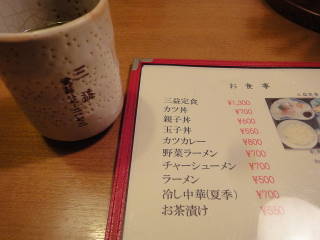 三益
お食事
三益定食 ¥1,300
カツ丼 ¥700
親子丼 ¥600
玉子丼 ¥550
カツカレー ¥800
野菜ラーメン ¥700
チャーシューメン ¥700
ラーメン ¥500
冷し中華(夏季) ¥700
お茶漬け ¥550